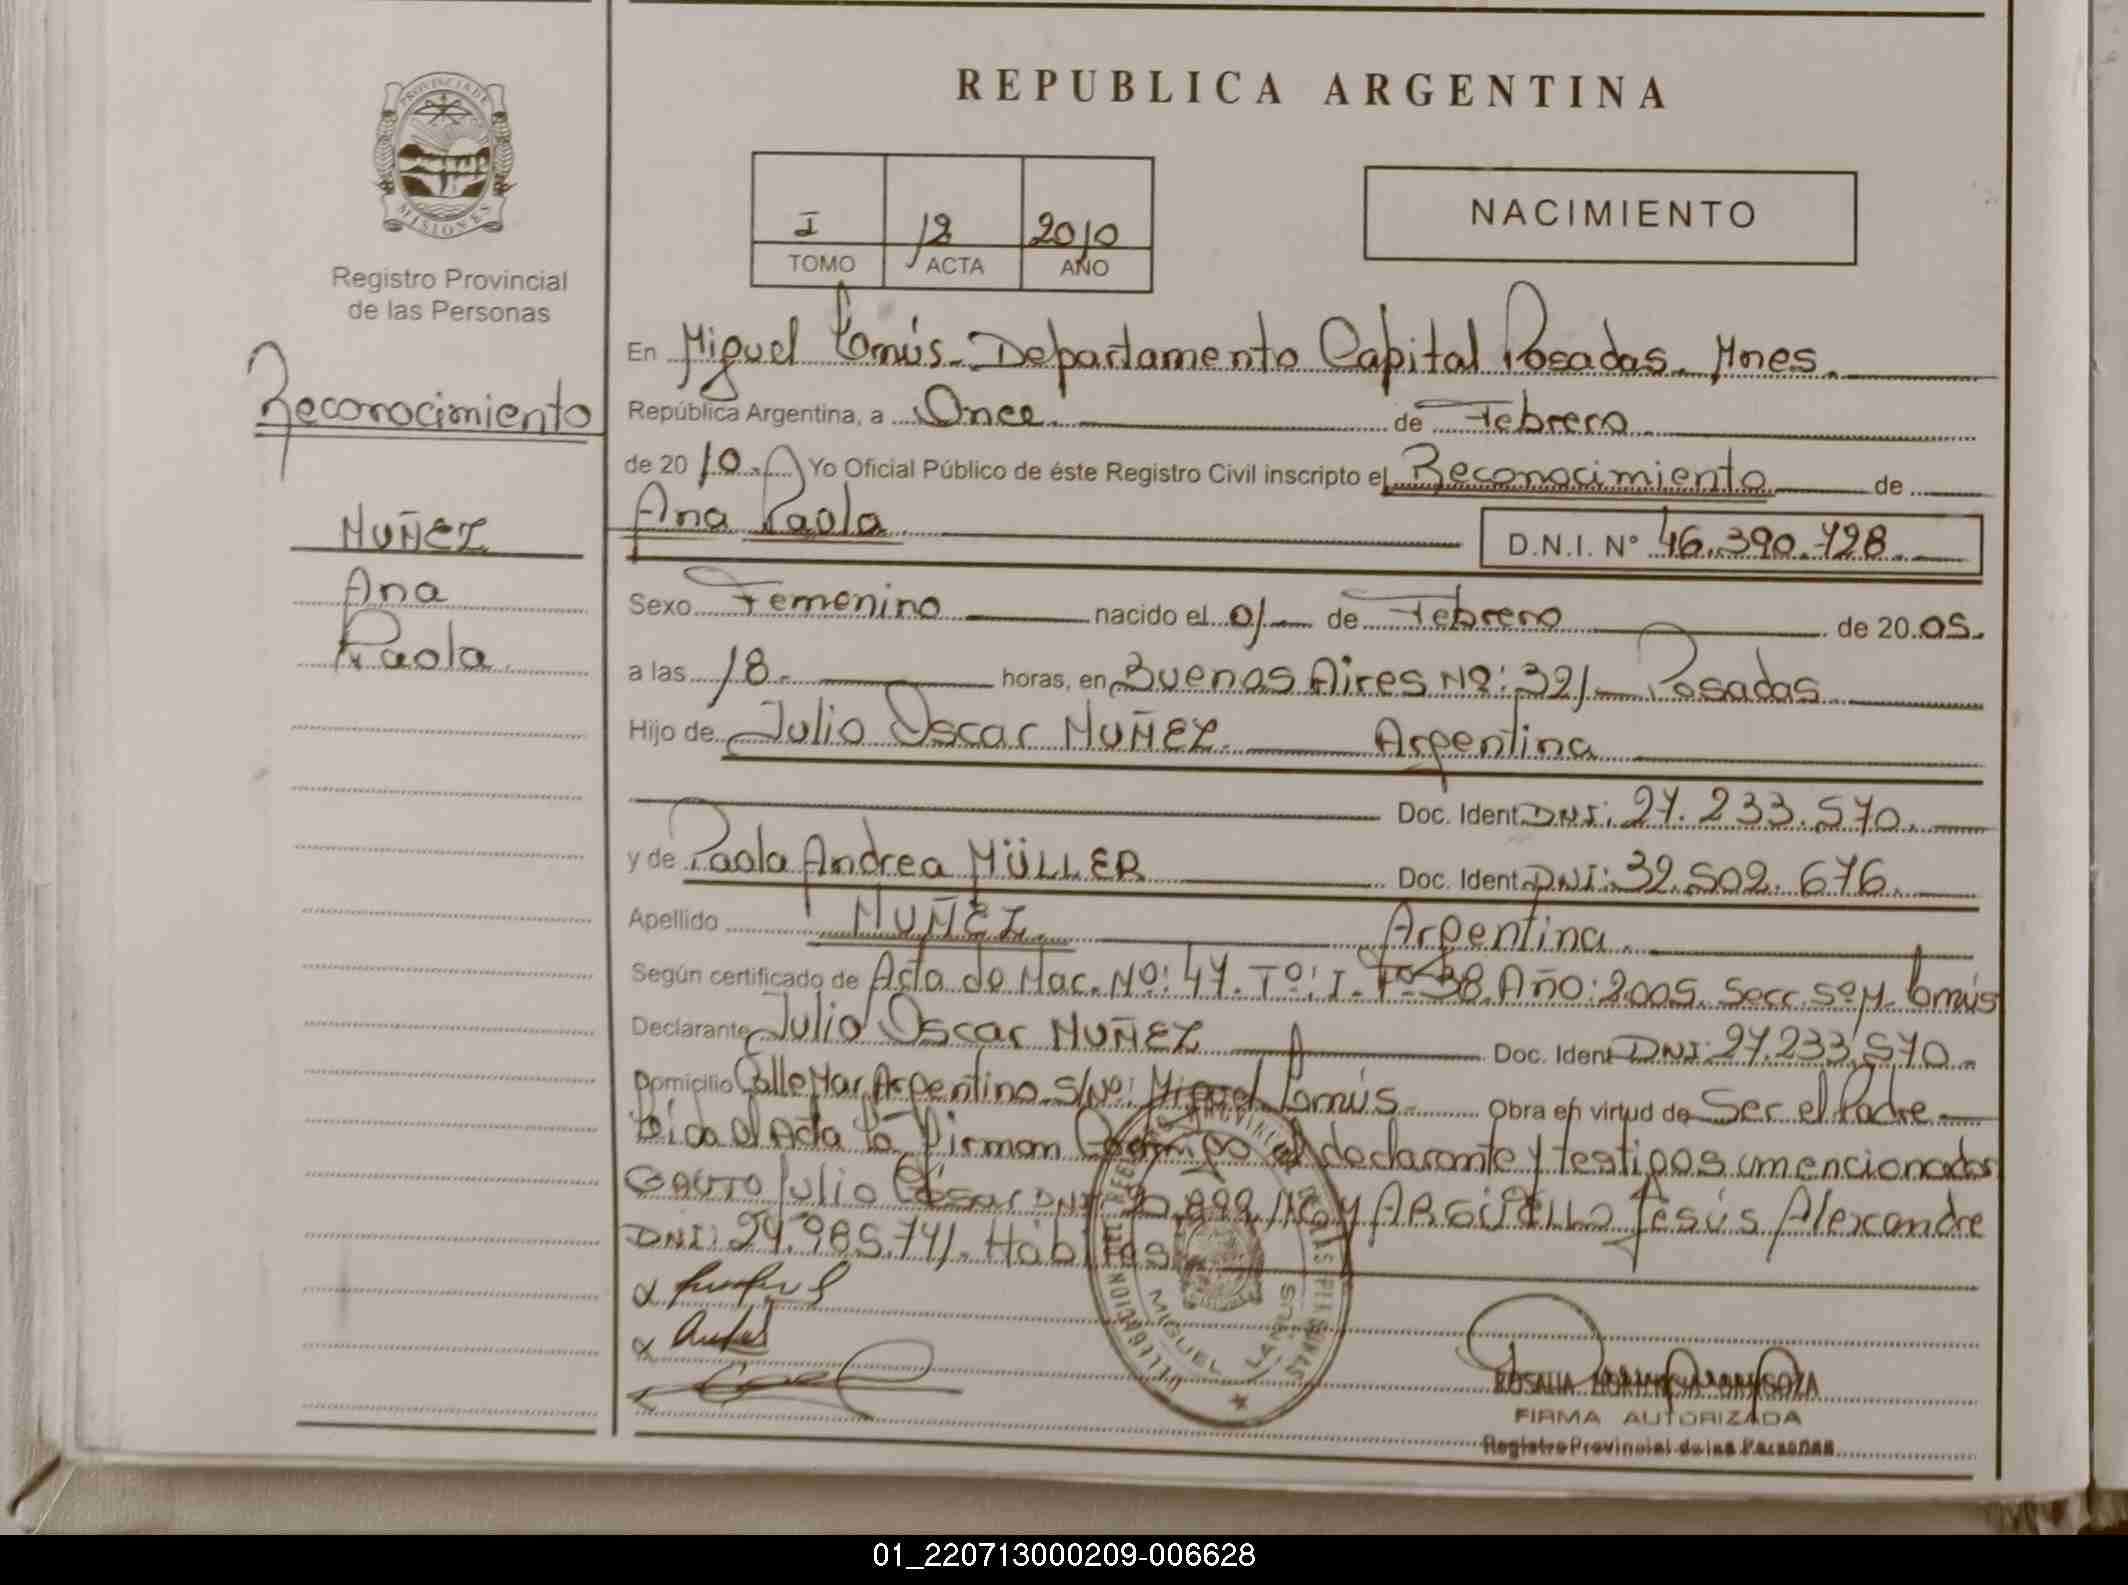 REPUBLICA ARGENTINA
PROVINCIA DE
MISIONES
Registro Provincial
de las Personas
I 12 2010
TOMO ACTA AÑO
NACIMIENTO
Reconocimiento
NUÑEZ
Ana
Paola
En Miguel Lanús - Departamento Capital Posadas. Mnes.
República Argentina, a Once. de Febrero
de 2010. Yo Oficial Público de éste Registro Civil inscripto el Reconocimiento de
Ana Paola D.N.I. N° 46.390.728
Sexo Femenino nacido el 01 de Febrero de 2005.
a las 18. horas, en Buenos Aires Nº: 321 Posadas
Hijo de Julio Oscar NUÑEZ. Argentina
Doc. Ident DNI: 27.233.570.
y de Paola Andrea MÜLLER Doc. Ident DNI: 32.502.676.
Apellido NUÑEZ Argentina.
Según certificado de Acta de Nac. Nº: 47. Tº: I. Fº 38. Año: 2005. Secc. 5º M. Lanús
Declarante Julio Oscar NUÑEZ Doc. Ident DNI: 27.233.570.
Domicilio Calle Mar Argentino S/Nº: Miguel Lanús Obra en virtud de Ser el Padre
Leída el Acta la Firman Conmigo el declarante y testigos mencionados
GAUTO Julio César DNI y ARGÜELLO Jesús Alexandre
DNI: 24.985.741. Hábiles
MIGUEL LANUS
FIRMA AUTORIZADA
Registro Provincial de las Personas
01_220713000209-006628